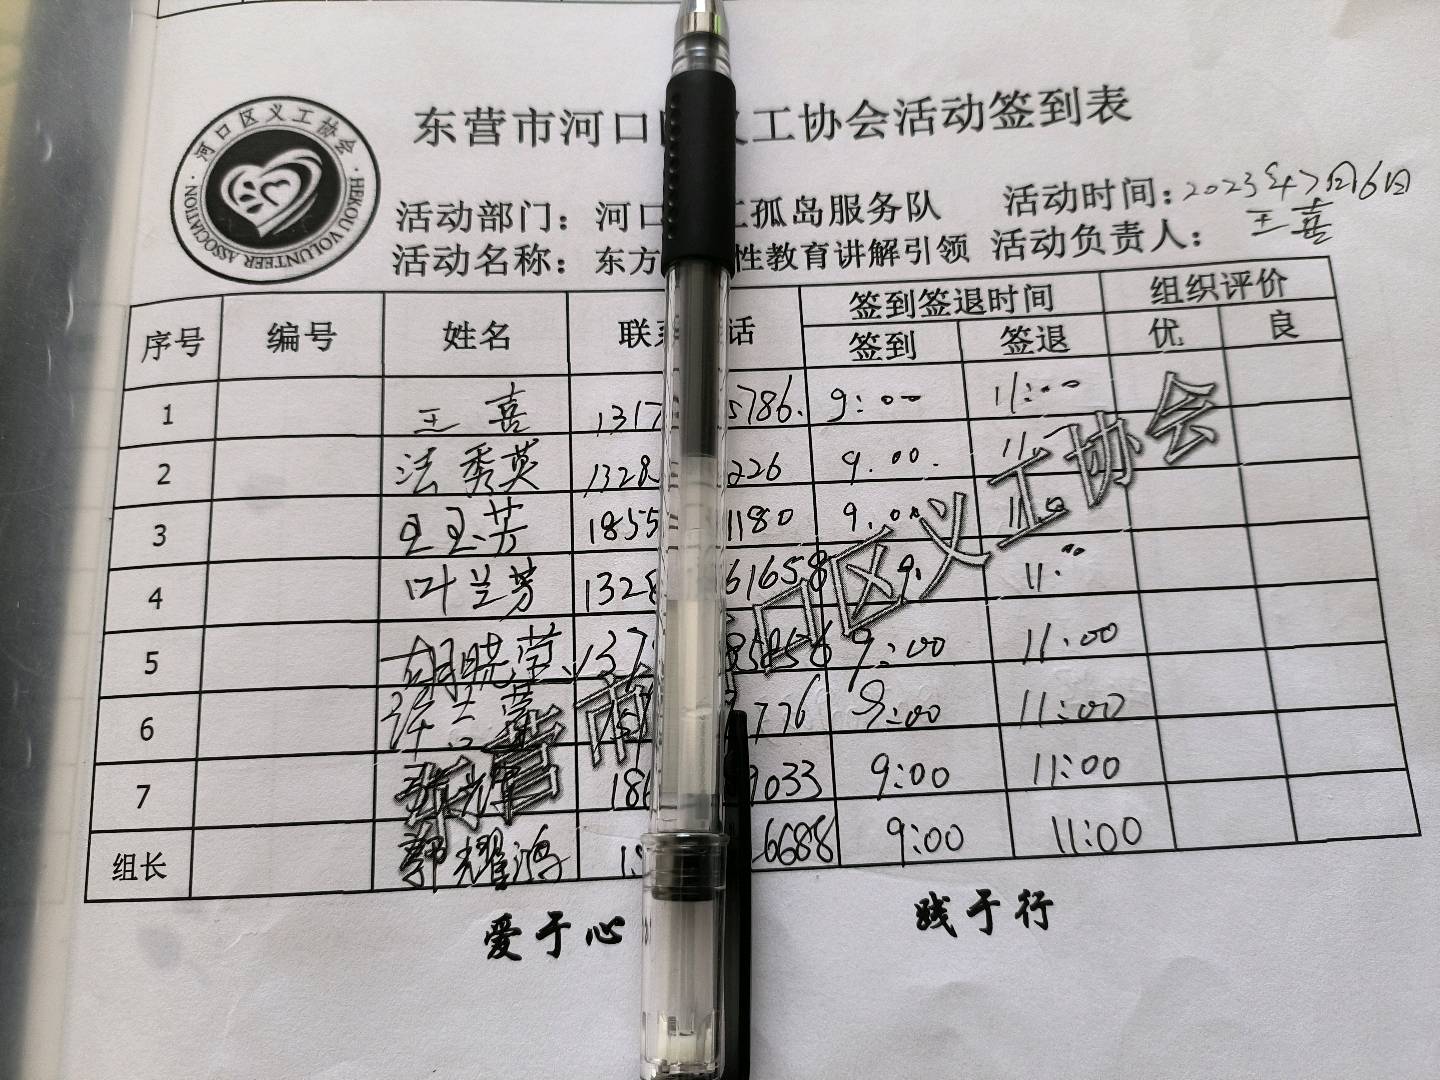 河口区义工协会
HEKOU VOLUNTEER ASSOCIATION
东营市河口 工协会活动签到表
活动部门：河口 工孤岛服务队 活动时间：2023年7月6日
活动名称：东方 性教育讲解引领 活动负责人：王喜
序号 编号 姓名 联系 话 签到签退时间 组织评价
签到 签退 优 良
1 王喜 1317 5786. 9:00 11:00
2 法秀英 1328 226 9.00. 11.
3 王玉芳 1855 1180 9.00 11.00
4 叶兰芳 1328 61658 9. 11.00
5 胡晓莹 137 9:00 11:00
6 776 9:00 11:00
7 186 9033 9:00 11:00
组长 郭耀鸿 6688 9:00 11:00
东营市 口区义工协会
爱于心 践于行